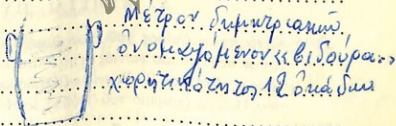 Μέτρον δημητριακῶν
ὀνομαζόμενον «βιδούρα»
χωρητικότητος 12 ὀκάδων